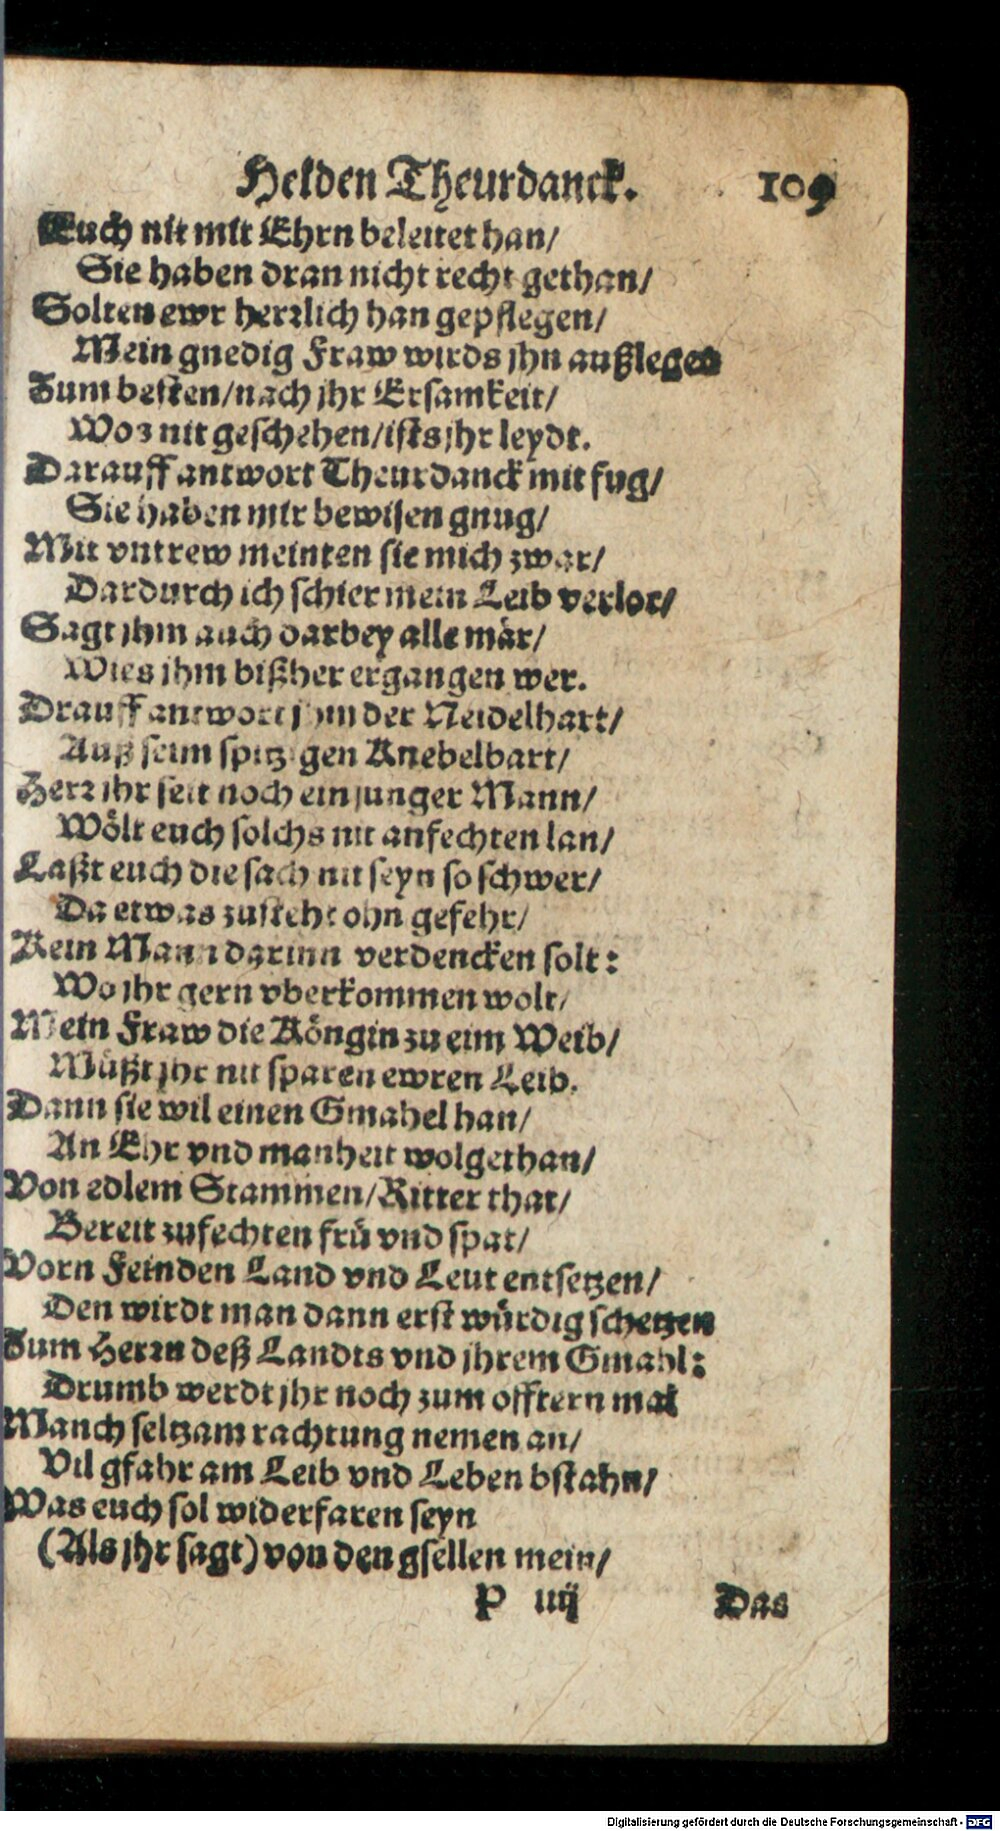 Helden Theurdanck. 109
Euch nit mit Ehrn beleitet han/
Sie haben dran nicht recht gethan/
Solten ewr herꝛlich han gepflegen/
Mein gnedig Fraw wirds jhn außlegen
Zum besten/nach jhr Ersamkeit/
Woꝛ nit geschehen/ists jhr leydt.
Darauff antwort Theurdanck mit fug/
Sie haben mir bewisen gnug/
Mit vntrew meinten sie mich zwar/
Dardurch ich schier mein Leib verlor/
Sagt jhm auch darbey alle mär/
Wies jhm bißher ergangen wer.
Drauff antwort jhm der Neidelhart/
Auß seim spitzigen Knebelbart/
Herꝛ jhr seit noch ein junger Mann/
Wölt euch solchs nit anfechten lan/
Laßt euch die sach nit seyn so schwer/
Da etwas zusteht ohn gefehr/
Kein Mann darinn verdencken solt:
Wo jhr gern vberkommen wolt/
Mein Fraw die Köngin zu eim Weib/
Müßt jhr nit sparen ewren Leib.
Dann sie wil einen Gmahel han/
An Ehr vnd manheit wolgethan/
Von edlem Stammen/Ritter that/
Bereit zufechten frü vnd spat/
Vorn Feinden Land vnd Leut entsetzen/
Den wirdt man dann erst würdig schetzen
Zum Herꝛn deß Landts vnd jhrem Gmahl:
Drumb werdt jhr noch zum offtern mal
Manch seltzam rachtung nemen an/
Vil gfahr am Leib vnd Leben bstahn/
Was euch sol widerfaren seyn
(Als jhr sagt) von den gsellen mein/
P iiij Das
Digitalisierung gefördert durch die Deutsche Forschungsgemeinschaft - DFG